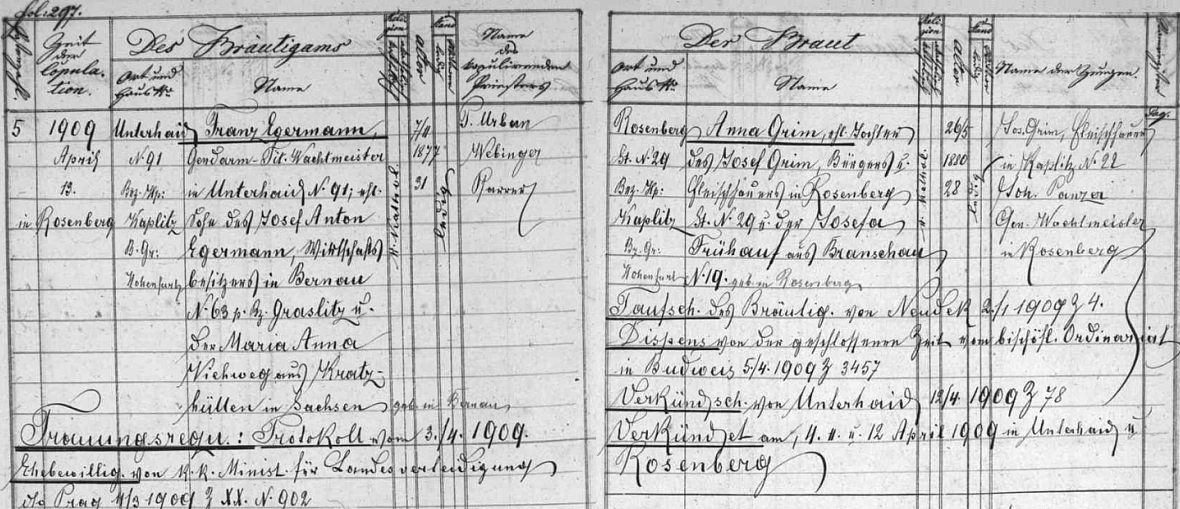 fol: 297.
Zeit der Copulation.
Des Bräutigams
Ort und Haus Nr.
Name
Alter
Stand
Name des copulirenden Priesters
5 1909 Unterhaid Franz Egermann, 7/4 P. Urban
April N. 91 Gendarm-Tit. Wachtmeister 1877 Webinger
13. Bez. Hp: in Unterhaid N. 91; ehl. 31 Pfarrer
in Rosenberg Kaplitz Sohn des Josef Anton
B. Gr: Egermann, Wirtschafts-
Hohenfurth besitzers in Bernau
N. 63 p. Bz. Graslitz u.
der Maria Anna
Viehweg aus Kratz-
hütten in Sachsen geb. in Bernau
Trauungsrequ.: Protokoll vom 3./4. 1909.
Ehebewillig. von k. k. Minist. für Landesverteidigung
dto Prag 11/3 1909 Z XX. N. 902
Der Braut
Ort und Haus Nr.
Name
Alter
Stand
Name der Zeugen.
Rosenberg Anna Grim, ehl. Tochter 26/5 Jos. Grim, Fleischhauer
St. N. 29 des Josef Grim, Bürgers u. 1880 in Kaplitz N. 22
Bez. Hp: Fleischhauers in Rosenberg 28 Joh. Panzer
Kaplitz St. N. 29 u. der Josefa Gen. Wachtmeister
Bz. Gr: Frühauf aus Branschau in Rosenberg
Hohenfurt N. 19. geb. in Rosenberg
Taufsch. des Bräutig. von Neudek 2./1 1909 Z 4.
Dispens von der geschlossenen Zeit vom bischöfl. Ordinariat
in Budweis 5/4. 1909 Z 3457
Verkündsch. von Unterhaid 12/4. 1909 Z 78
Verkündet am 4. 11. u. 12 April 1909 in Unterhaid u
Rosenberg